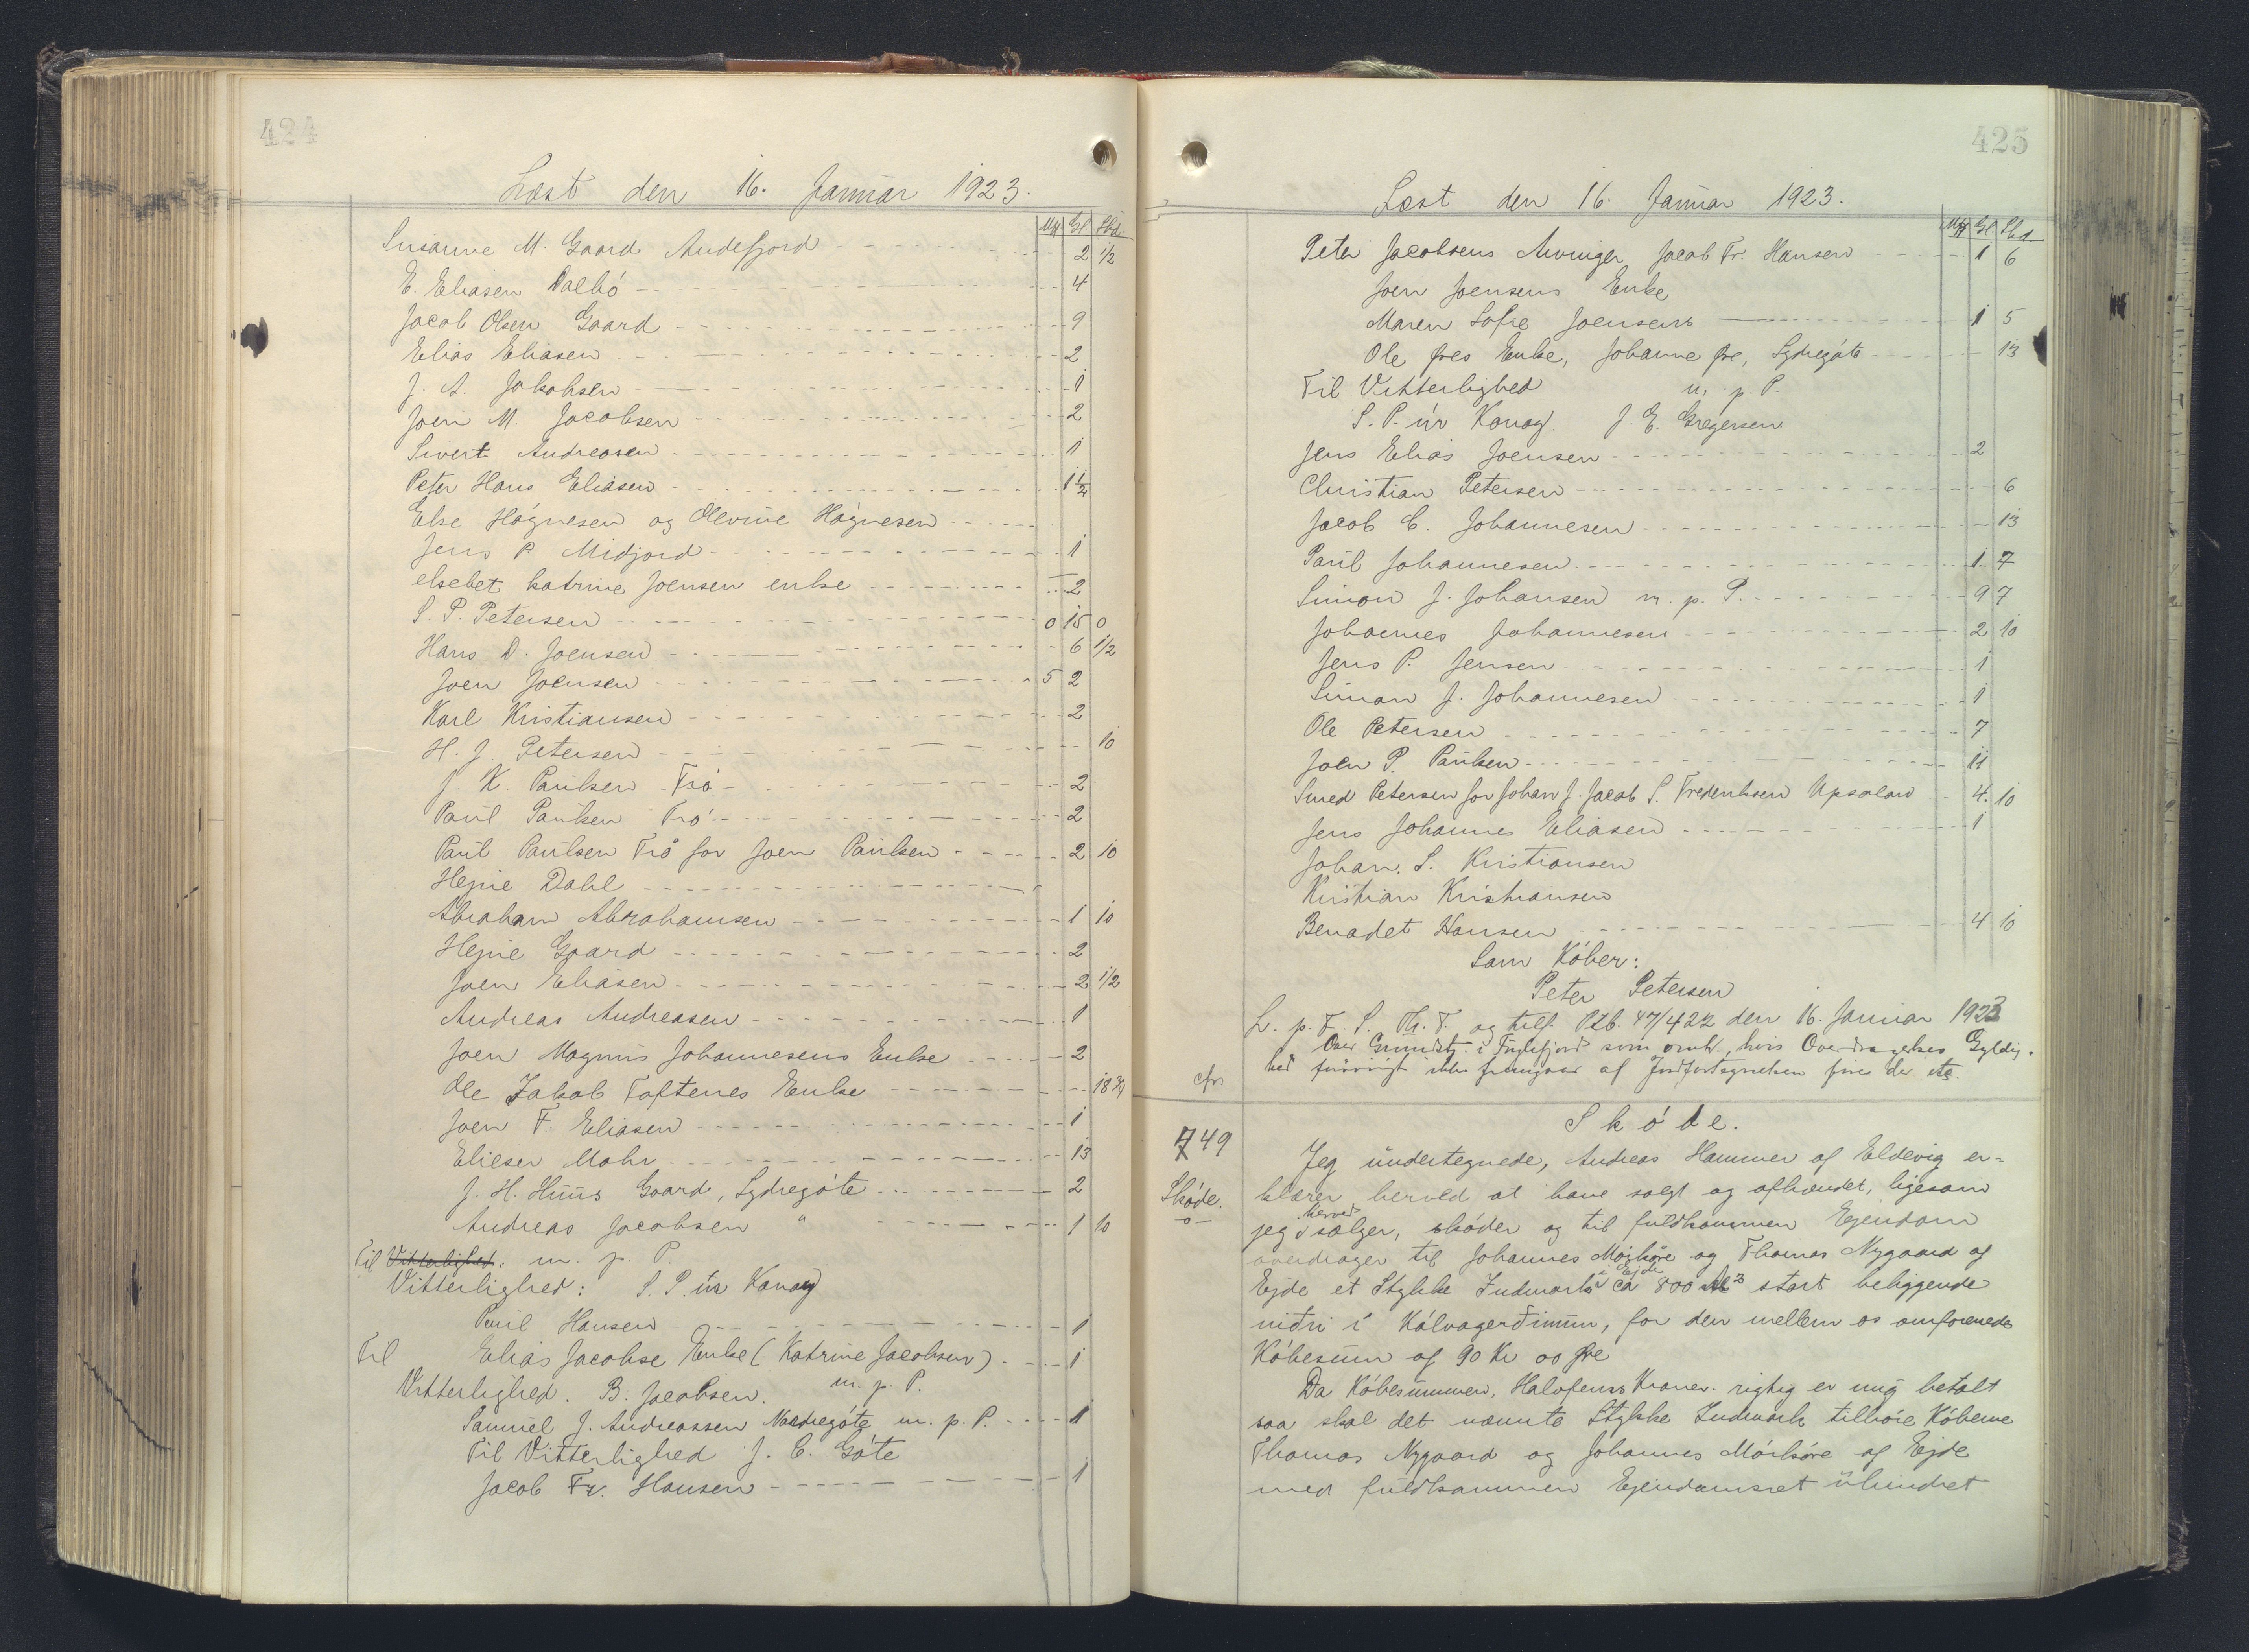 424
Læst den 16. Januar 1923.
Mk Gl Skd.
Susanne M. Gaard Andefjord 2 1/2
E. Eliasen Dalbó 4
Jacob Olsen Gaard 9
Elias Eliasen 2
J. A. Jakobsen 1
Joen M. Jacobsen 2
Sivert Andreasen 1
Peter Hans Eliasen 1 1/2
Else Høgnesen og Olevine Høgnesen
Jens P. Midjord 1
elsebet katrine Joensen enke 2
S. P. Petersen 0 15 0
Hans D. Joensen 6 1/2
Joen Joensen 5 2
Karl Kristiansen 2
H. J. Petersen 10
J. K. Paulsen Trø 2
Paul Paulsen Trø 2
Paul Paulsen Trø for Joen Paulsen 2 10
Hejne Dahl
Abraham Abrahamsen 1 10
Hejne Gaard 2
Joen Eliasen 2 1/2
Andreas Andreasen 1
Joen Magnus Johannesens Enke 2
Ole Jakob Toftenes Enke 18
Joen F. Eliasen 1
Elieser Mohr 13
J. H. Huus Gaard, Sydregóte 2
Andreas Jacobsen " 1 10
Til Vitterlighed: m. p. P.
Vitterlighed: S. P. úr Konoy
Paul Hansen 1
Til Elias Jacobse Enke (Katrine Jacobsen) 1
Vitterlighed. B. Jacobsen. m. p. P.
Samuel J. Andreassen Nordregóte m. p. P. 1
Til Vitterlighed J. C. Góte
Jacob Fr. Hansen 1
425
Læst den 16. Januar 1923.
Mk Gl Skd
Peter Jacobsens Arvinger Jacob Fr. Hansen 1 6
Joen Joensens Enke
Maren Sofie Joensens 1 5
Ole Joes Enke, Johanne Joe, Sydregóte 13
Til Vitterlighed m. p. P.
S. P. úr Konoy. J. E. Gregersen
Jens Elias Joensen 2
Christian Petersen 6
Jacob C. Johannesen 13
Paul Johannesen 1 7
Simon J. Johansen m. p. P. 9 7
Johannes Johannesen 2 10
Jens P. Jensen 1
Simon J. Johannesen 1
Ole Petersen 7
Joen P. Paulsen 11
Smed Petersen for Johan J. Jacob S. Frederiksen Upsalaw 4 10
Jens Johannes Eliasen 1
Johan. S. Kristiansen
Kristian Kristiansen
Benadet Hansen 4 10
Som Køber:
Peter Petersen
L. p. F. S. Th. T. og tilf. Pzb. 47/422 den 16. Januar 1923
Over Grundstj. i Fuglefjord som omh., hvis Overdragelses Gyldig-
hed forøvrigt ikke fremgaar af Jordfortegnelsen fører der
cfr
Skóde.
749
Skóde.
Jeg undertegnede, Andreas Hammer af Eldevig er=
klærer herved at have solgt og afhændet, ligesom
jeg herved sælger, skóder og til fuldkommen Ejendom
overdrager til Johannes Mørkøre og Thomas Nygaard af
Ejde et Stykke Indmark i Ejde ca 800 M² stort beliggende
niðri í Kálvagerðinum, for den mellem os omforenede
Købesum af 90 Kr 00 Øre
Da Købesummen, Halvfems Kroner rigtig er mig betalt
saa skal det nævnte Stykke Indmark tilhøre Køberne
Thomas Nygaard og Johannes Mørkøre af Ejde
med fuldkommen Ejendomsret uhindret